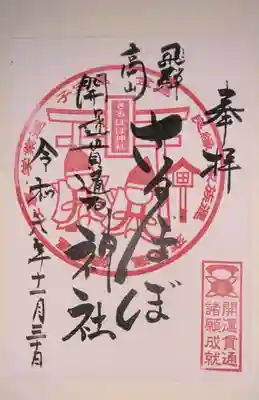 奉拝
飛騨
高山
さるぼぼ神社
開運貫通石
令和六年十一月三十日
さるぼぼ神社
開運貫通
諸願成就